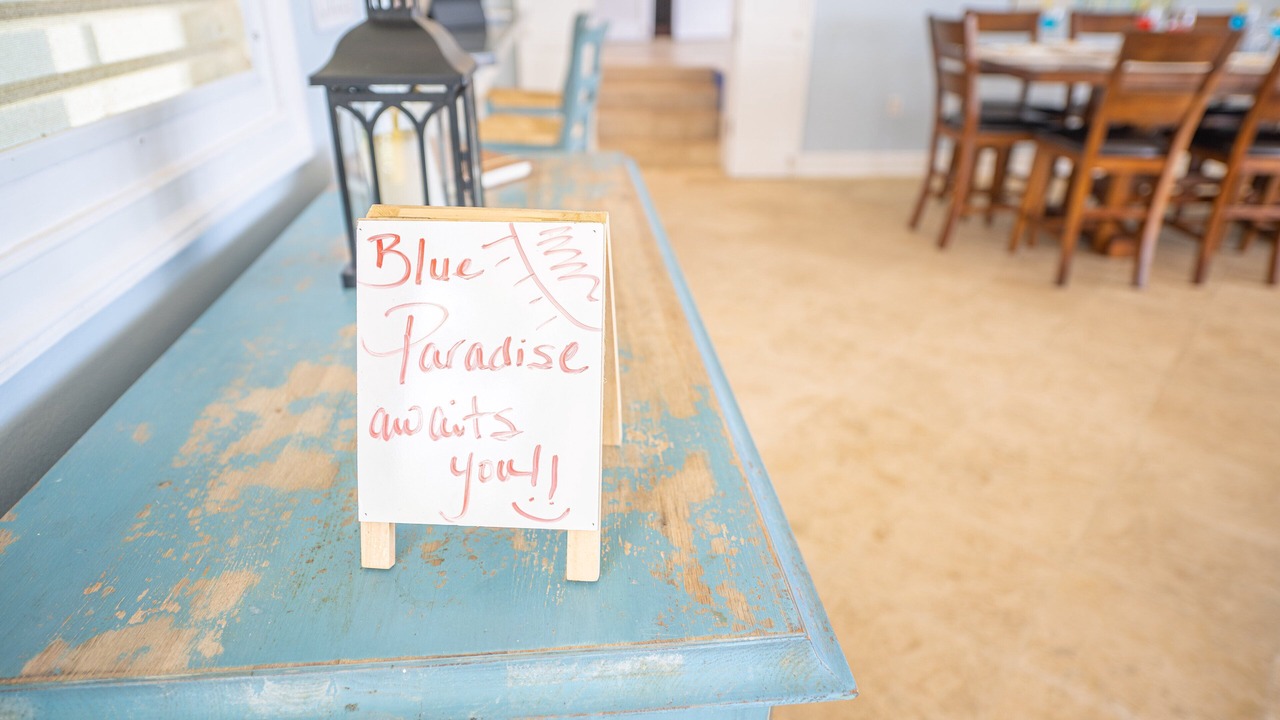 Blue
Paradise
awaits
you!!